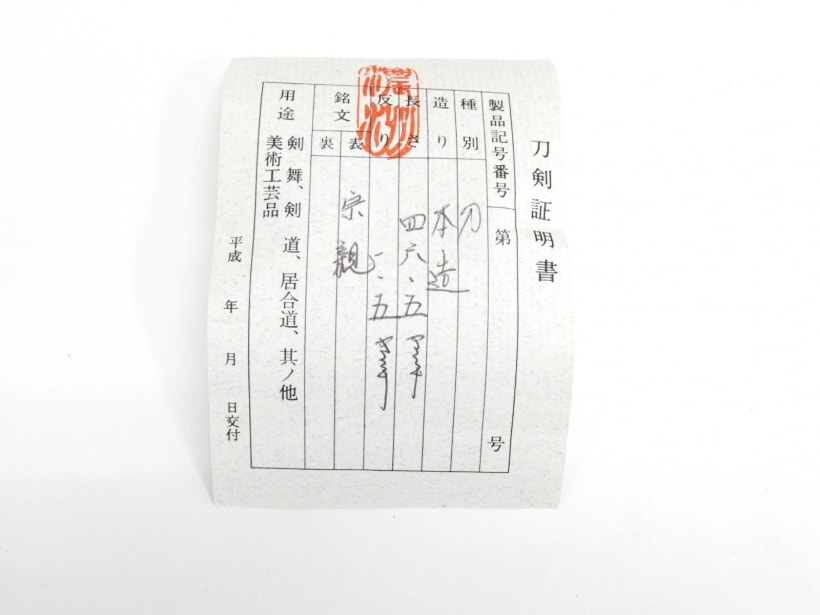 刀剣証明書
製品記号番号 第 号
種別 刀
造り 本造
長さ 四六、五
反り 一、五
銘文 表 宗親
裏
用途 剣舞、剣道、居合道、其ノ他
美術工芸品
平成 年 月 日交付